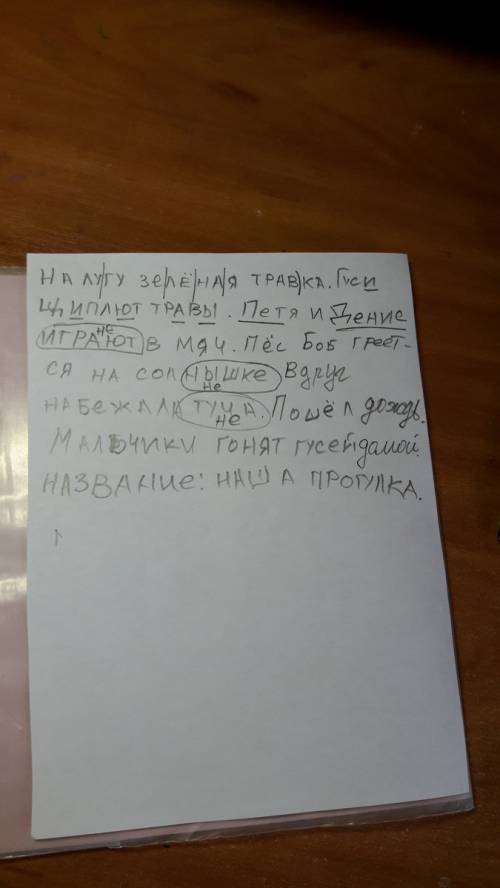 НА ЛУГУ ЗЕЛЁНАЯ ТРАВКА. ГУСИ
ЩИПЛЮТ ТРАВЫ. ПЕТЯ И ДЕНИС
ИГРАЮТ В МЯЧ. ПЁС БОБ ГРЕЕТ-
не
СЯ НА СОЛНЫШКЕ ВДРУГ
не
НАБЕЖАЛА ТУЧА. ПОШЁЛ ДОЖДЬ.
не
МАЛЬЧИКИ ГОНЯТ ГУСЕЙ ДАМОЙ.
НАЗВАНИЕ: НАША ПРОГУЛКА.